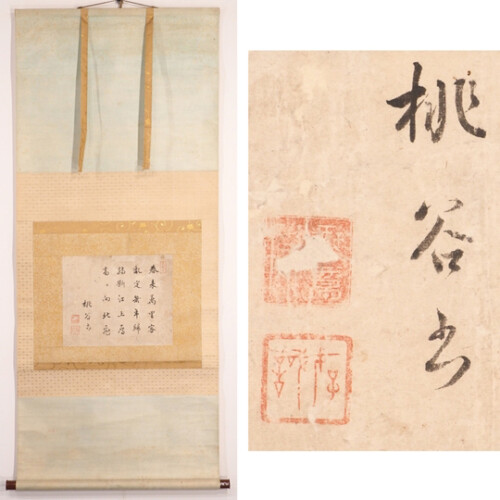 春来萬里客
亂定幾年歸
腸斷江上雁
高々向北飛
桃谷書
桃谷書